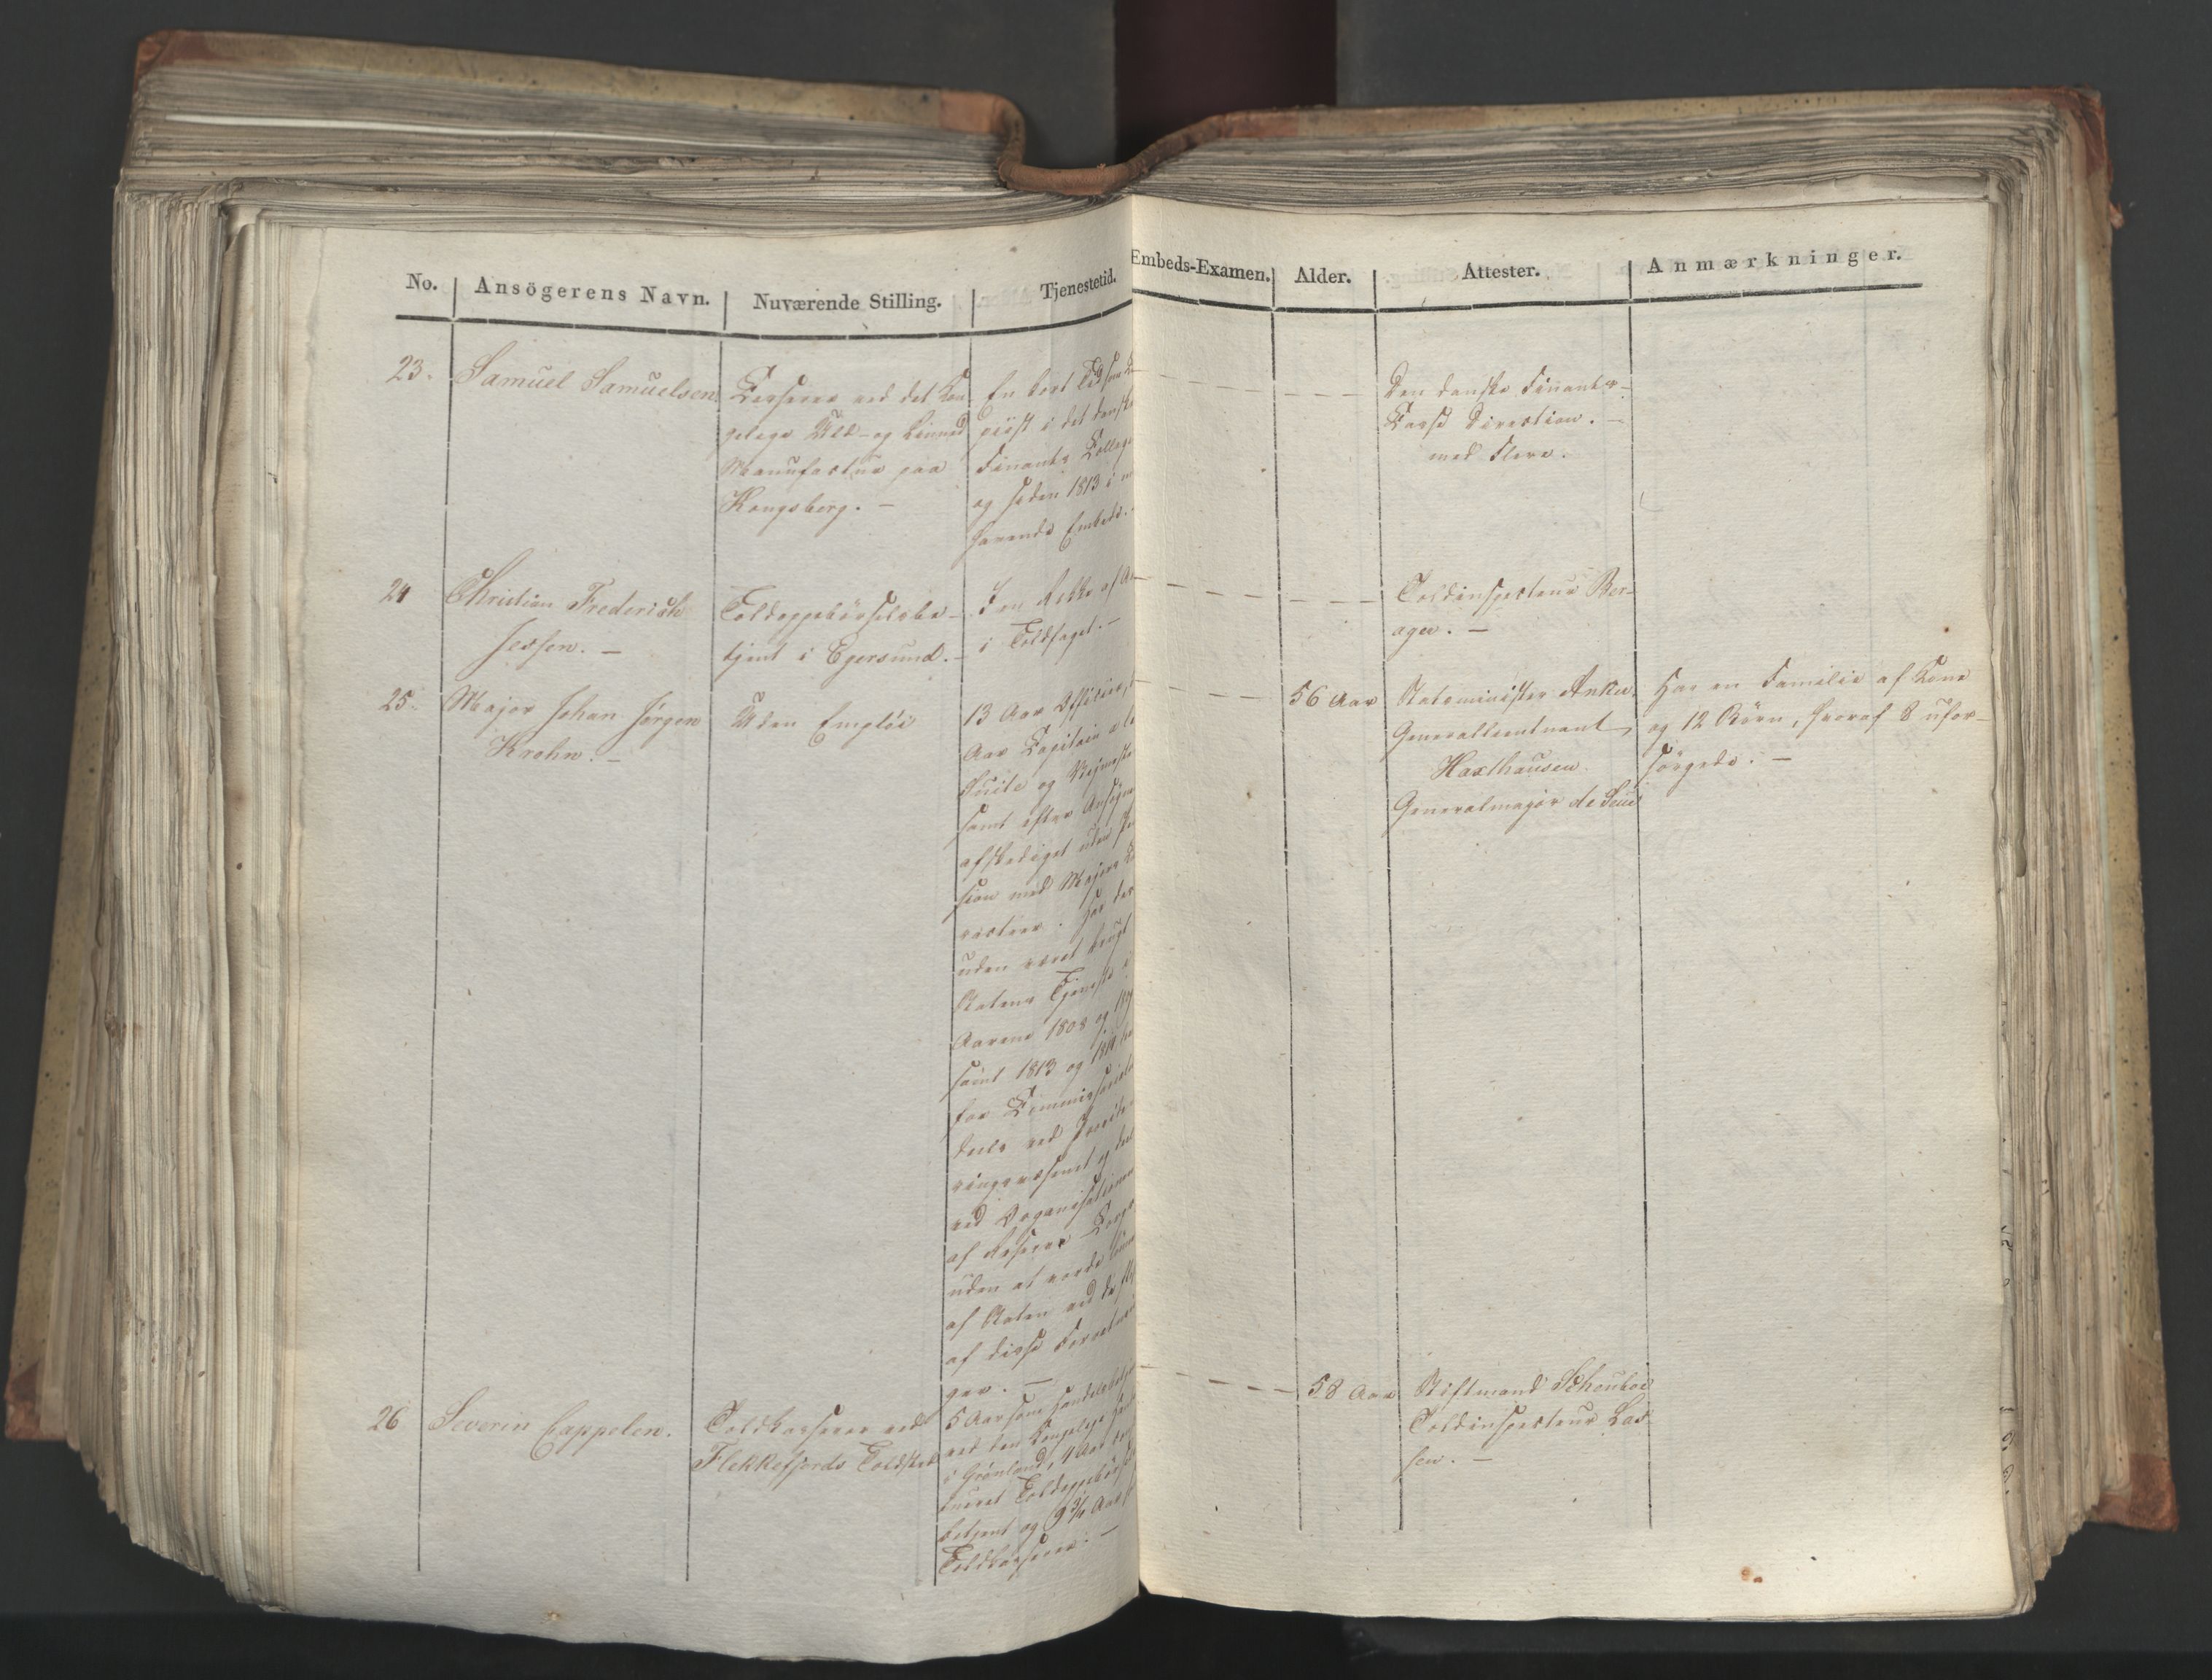 No. Ansögerens Navn. Nuværende Stilling. Tjenestetid.
Embeds-Examen. Alder. Attester. Anmærkninger.
23. Samuel Samuelsen
Casserer ved det Kon
gelige Uld- og Linned
Manufactur paa
Kongsberg. –
En kort Tid som
piist i det danske
Finants Colleg
og siden 1813 i
havende Embede.
Den danske Finants-
Casse Direction. –
med Flere.
24 Christian Frederich
Jessen. –
Toldoppebörselsbe-
tjent i Egersund. –
I en Rekke af
i Toldfaget. –
Toldinspecteur Ber-
ager. –
25. Major Johan Jørgen
Krohn. –
Uden Emploi
13 Aar Officier,
Aar Capitain a la
Suite og
samt efter Ansögn
afskediget uden
sion med Majors
racteer. Har des
uden været brugt
Statens Tjeneste
Aarene 1808 og
samt 1813 og 1814
for Commissariatet
deels ved
ringsvæsenet og deel
ved Organisationen
af Reserve Corps
uden at vorde lönnet
af Staten ved de fleste
af disse Forretnin
ger. –
56 Aar
Statsminister Anker.
Generallieutnant
Haxthausen
Generalmajor de Seue
Har en Familie af Kone
og 12 Börn, hvoraf 8 ufor-
sörgede. –
26 Severin Cappelen.
Toldkasserer ved
Flekkefjords Toldsted
5 Aar som Handelsbetjent
ved den Kongelige Handel
i Grönland, 4 Aar
Toldoppebörsels
betjent og 9 3/4 Aar
Toldkasserer. –
58 Aar
Stiftmand Schouboe
Toldinspecteur Las-
sen. –